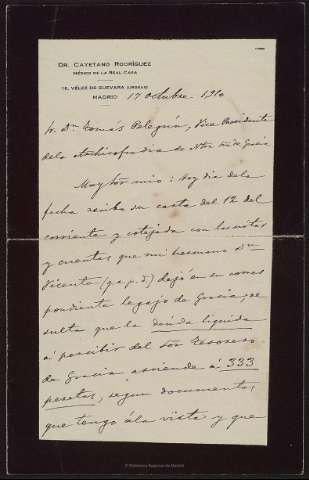 DR. CAYETANO RODRÍGUEZ
MÉDICO DE LA REAL CASA
16, VÉLEZ DE GUEVARA
MADRID 17 octubre 1910
Sr. Dn. Tomás Pelegrín, Vice Presidente
de la Archicofradia de Ntra Sra de Gracia
Muy Sor mio: hoy dia de la
fecha recibo su carta del 12 del
corriente y cotejada con las notas
y cuentas que mi hermano Dn
Vicente (q. e. p. d.) dejó en su corres
pondiente legajo de Gracia, re
sulta que la deuda liquida
á percibir del Sor Tesorero
de Gracia asciende á 333
pesetas, segun documentos
que tengo á la vista y que
© Biblioteca Regional de Madrid